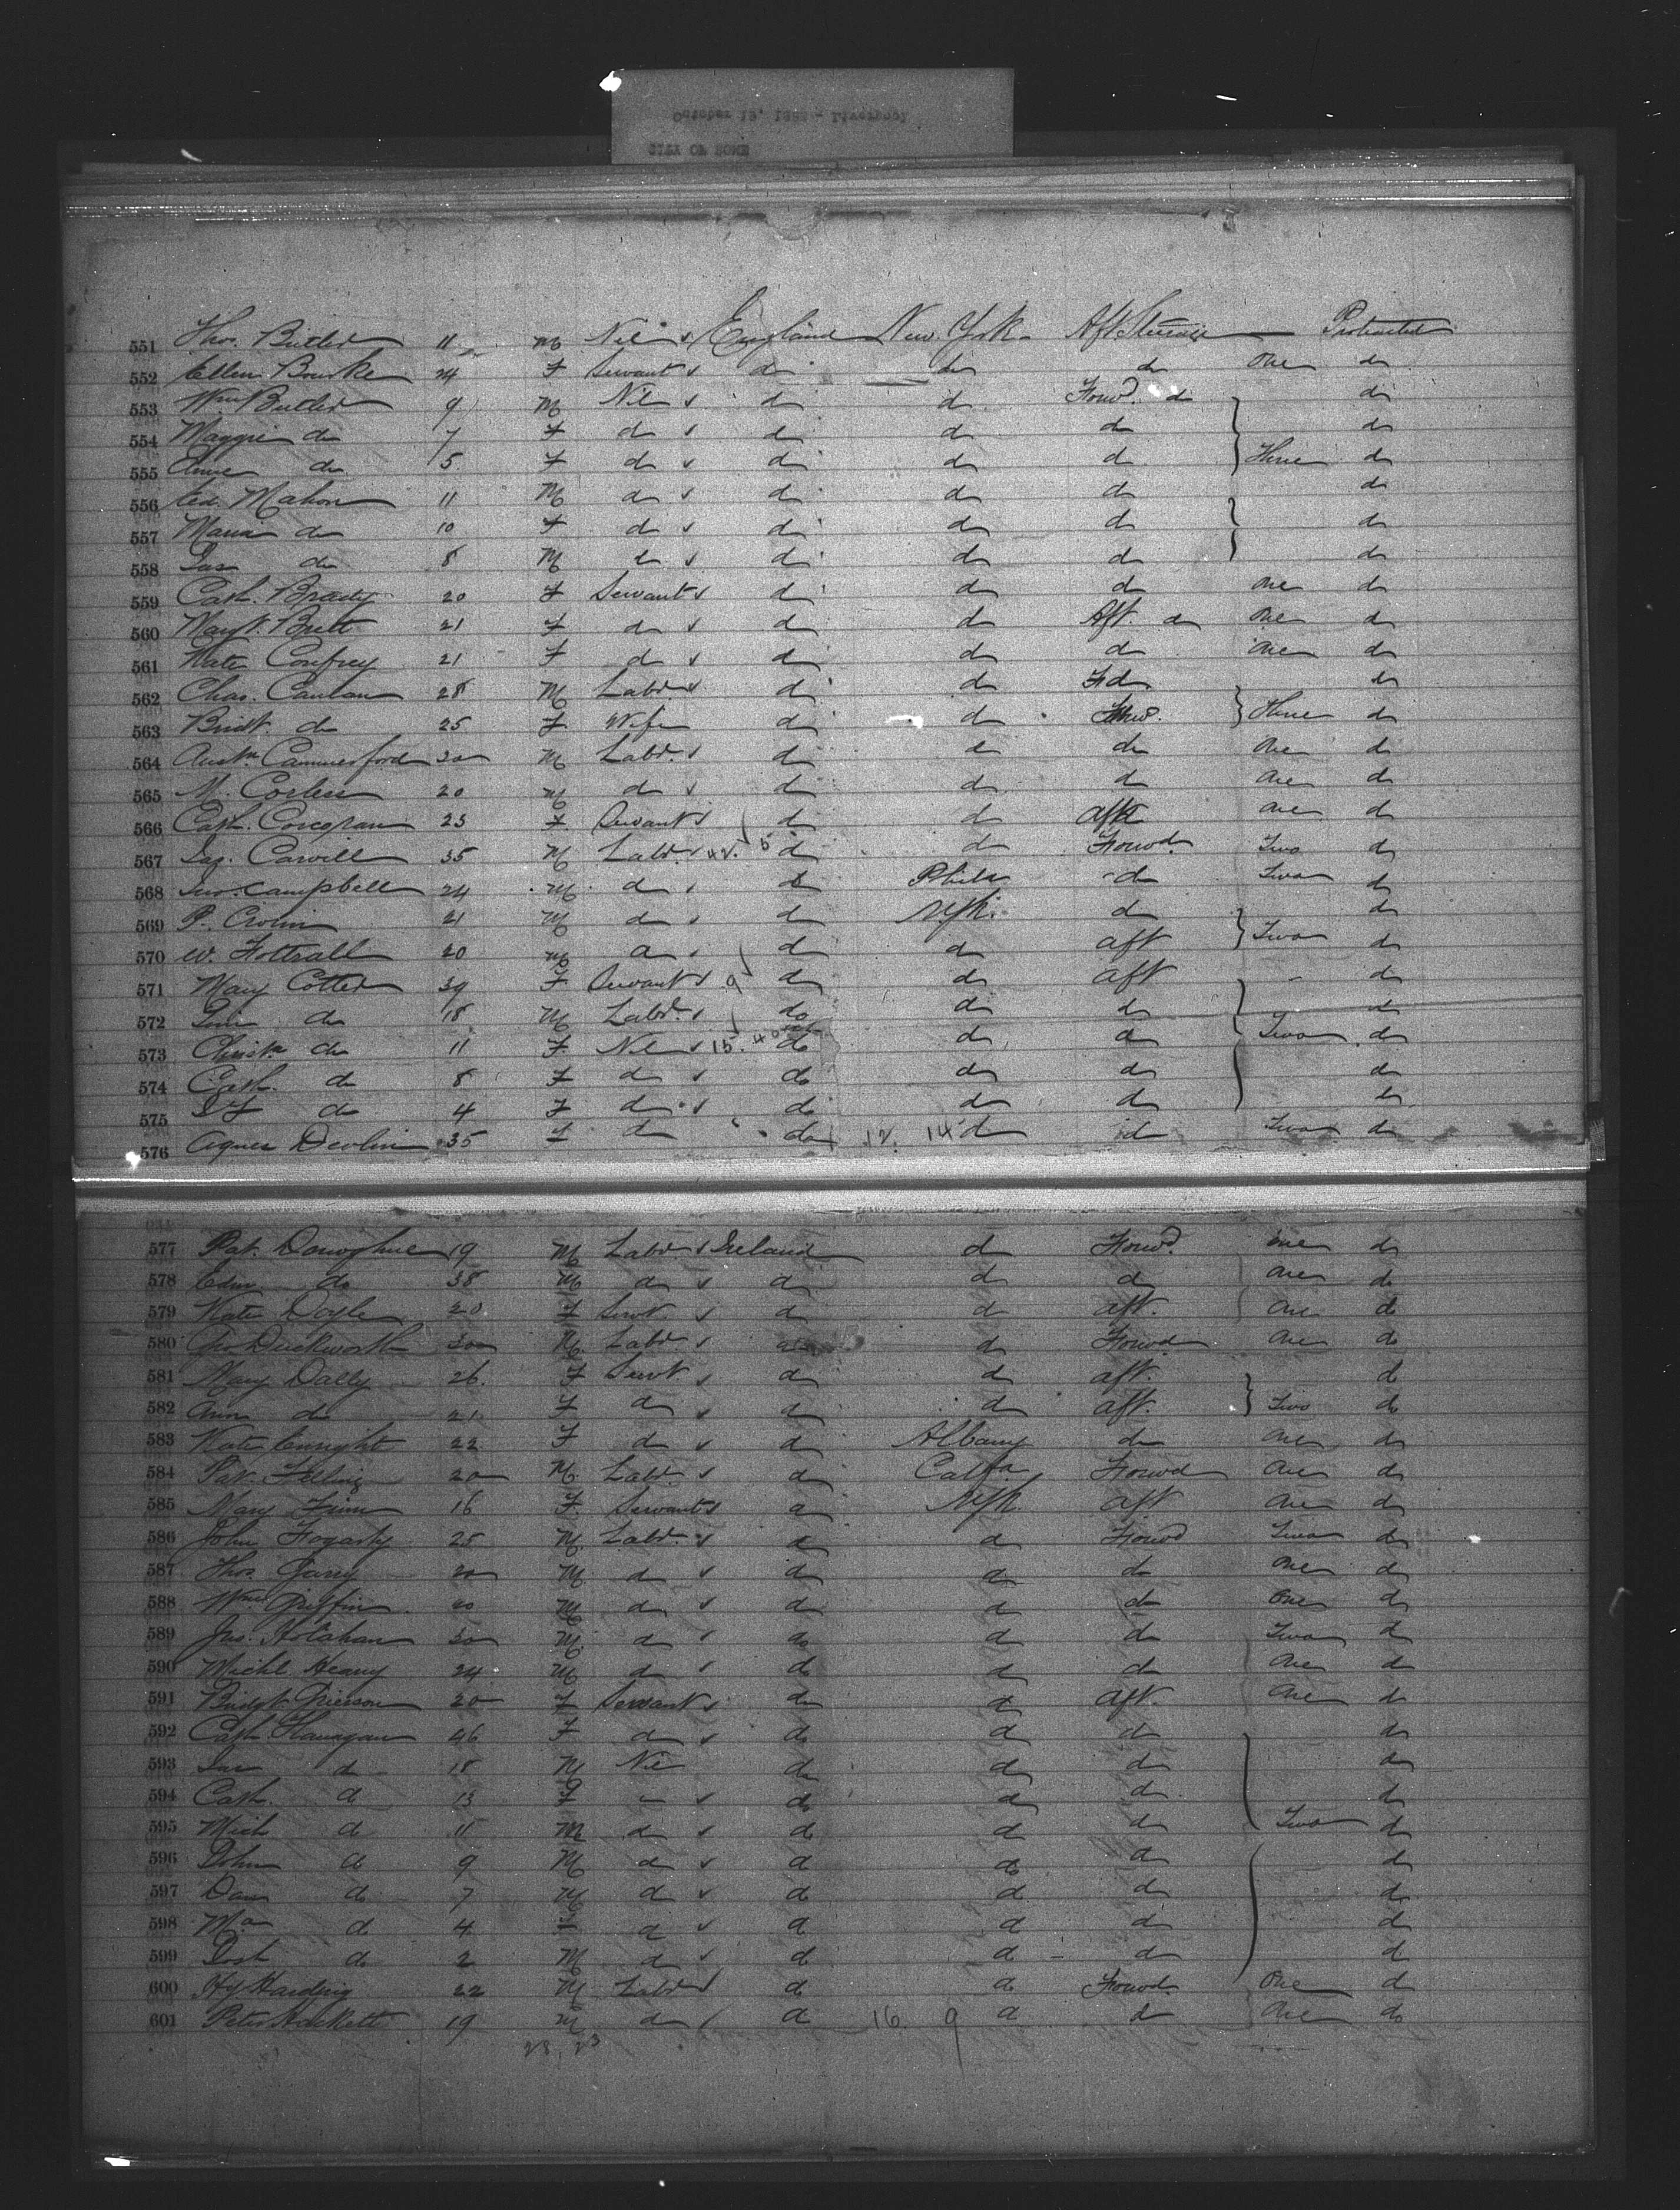 October 19, 188 - Liverpool
CITY OF ROME
551 Thos. Butler 11 M Nil England New York Aft Steerage Protracted
552 Ellen Bourke 24 F Servant do do do One do
553 Wm Butler 9 M Nil do do Forwd. do do
554 Maggie do 7 F do do do do do
555 Anne do 5 F do do do do Three do
556 Ed. Mahon 11 M do do do do do
557 Maria do 10 F do do do do do
558 Jas do 8 M do do do do do
559 Cath. Brady 20 F Servant do do do One do
560 Margt. Brett 21 F do do do Aft. do One do
561 Kate Confrey 21 F do do do do One do
562 Chas. Canlan 28 M Labr. do do F do do
563 Bridt. do 25 F Wife do do Forwd. Three do
564 Austn Cammerford 30 M Labr. do do do One do
565 M. Corless 20 M do do do do One do
566 Cath. Corcoran 23 F Servant do do Aft One do
567 Jas. Carvill 35 M Labr. 42. 5 do do Forwd. Two do
568 Jno. Campbell 24 M do do Phila do Two do
569 P. Cronin 21 M do do NYk. do do
570 W. Fottrall 20 M do do do aft Two do
571 Mary Cotter 39 F Servant 9 do do aft do
572 do 18 M Labr. do do do do
573 Christn do 11 F Nil 15. 40 do do do Two do
574 Cath. do 8 F do do do do do
575 do 4 F do do do do do
576 Agnes Devlin 35 F do do 12. 14 do do Two do
577 Pat. Donoghue 19 M Labr Ireland do Forwd. One do
578 Edm do 38 M do do do do One do
579 Kate Doyle 20 F Servt do do aft. One do
580 Geo Duckworth 30 M Labr. do do Forwd One do
581 Mary Dally 26. F Servt do do aft. do
582 Ann do 21 F do do do aft. Two do
583 Kate Enright 22 F do do Albany do One do
584 Pat. 20 M Labr. do Calfa Forwd One do
585 Mary Finn 16 F. Servant do NYk aft One do
586 John Fogarty 25 M. Labr. do do Forwd Two do
587 Thos Garry 20 M do do do do One do
588 Wm Griffin 20 M do do do do One do
589 Jno. Holahan 30 M do do do do Two do
590 Michl Heany 24 M do do do do One do
591 Bridgt Grierson 20 F Servant do do aft. One do
592 Cath Flanagan 46 F do do do do do
593 Jas do 18 M Nil do do do do
594 Cath. do 13 F do do do do
595 Mich do 11 M do do do do Two do
596 John do 9 M do do do do do
597 Dan do 7 M do do do do do
598 Ma do 4 F do do do do do
599 Josh do 2 M do do do do do
600 Hy Harding 22 M Labr do do Forwd. One do
601 Peter Hackett 19 M do do 16. 9 do do One do
28. 23